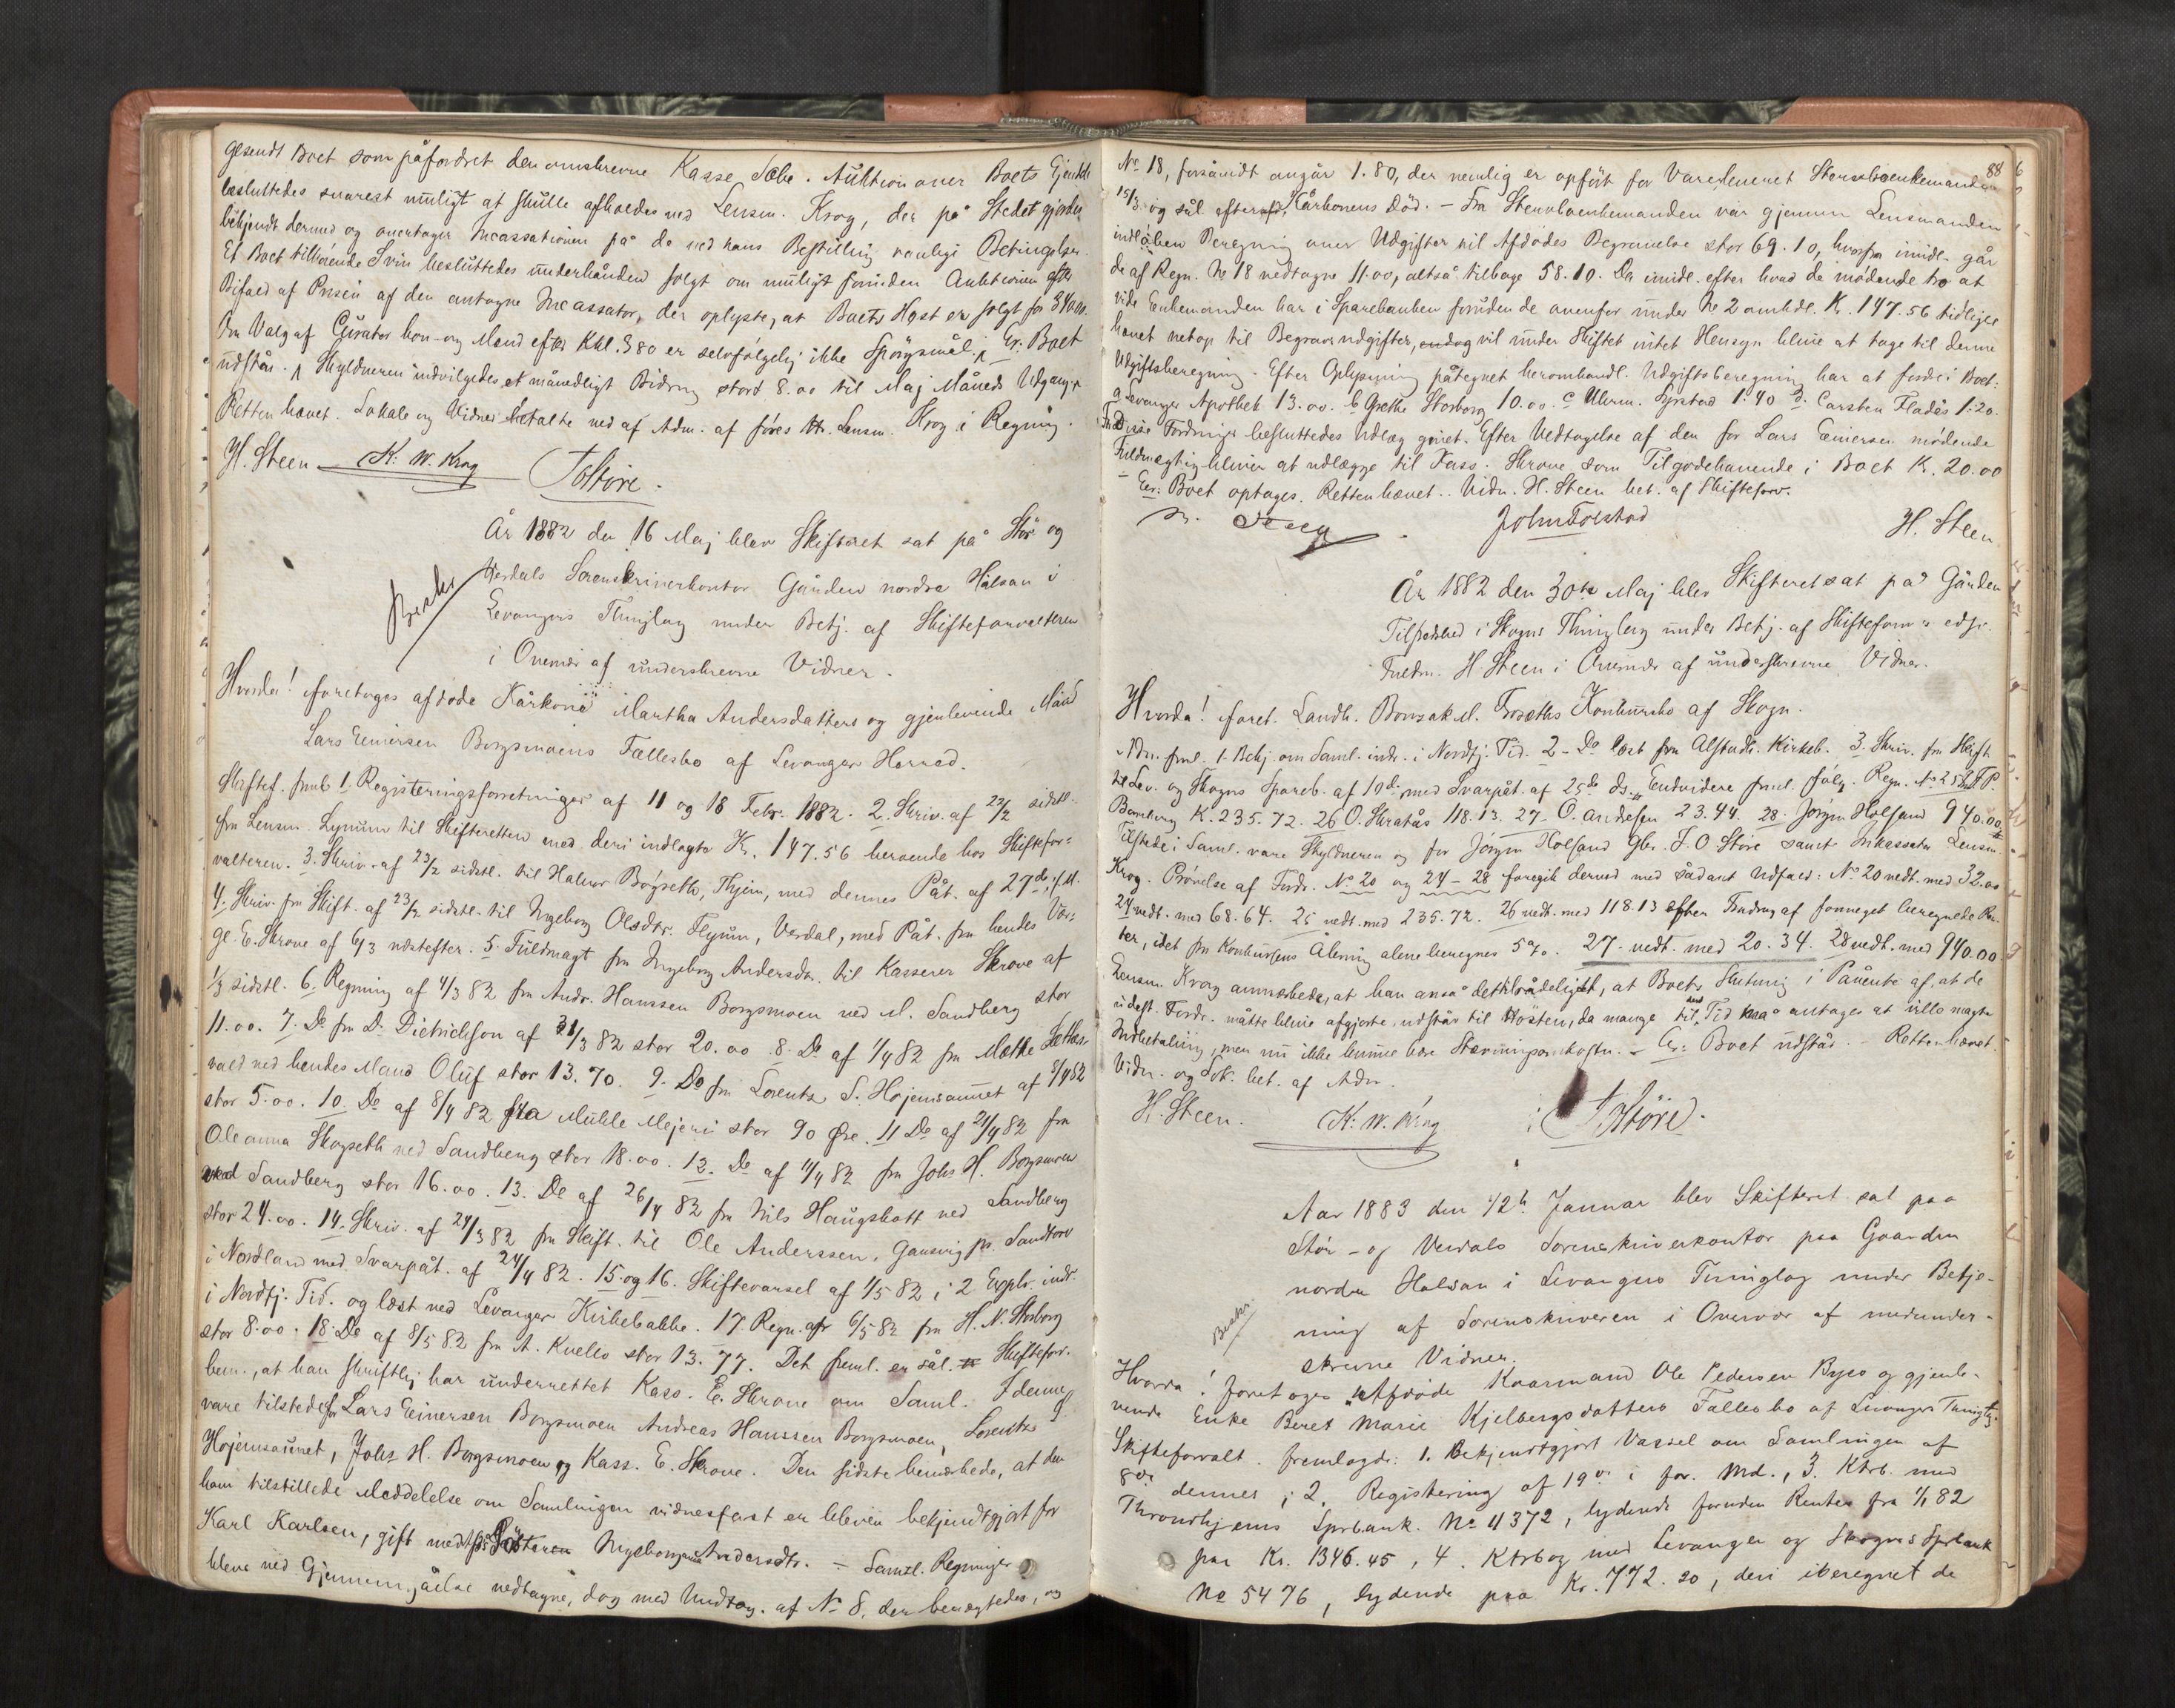 gesendt Boet som påfordret den omskrevne Kasse Sæbe. Auktion over Boets Gjendele
besluttedes snarest muligt at skulle afholdes ved Lensm. Krog, der på Stedet gjordes
bekjendt dermed og overtager Incassationen på de ved hans Bestilling vanlige Betingelser.
Et Boet tilhörende Svin besluttedes underhånden solgt om muligt forinden Auktionen efter
Bifald af Prisen af den antagne Incassator, der oplyste, at Boets Hest er solgt for 340.00.
Om Valg af Curator bon- og Mand efter Kkl. 380 er selvfølgelig ikke Spörgsmål. Er: Boet
udstår. Skyldneren indvilgedes et månedligt Bidrag stort 8.00 til Maj Måneds Udgang.
Retten hævet. Lokale og Vidner betalte ved af Adm. af föres Lensm. Krog i Regning.
H. Steen K. W. Krog JoStöre.
År 1882 den 16 Maj blev Skifteret sat på Stör og
Værdals Sorenskriverkontor Gården nordre Halsan i
Levangers Thinglag under Betj. af Skifteforvalteren
i Overvær af underskrevne Vidner.
Besk.
Hvorda! foretoges afdöde Kårkone Martha Andersdatters og gjenlevende Mand
Lars Einersen Borgsmoens Fællesbo af Levanger Herred.
Skiftef. fremb 1. Registeringsforretninger af 11 og 18 Febr. 1882. 2. Skriv. af 22/2 sidstl.
fra Lensm. Lynum til Skifteretten med deri indlagte Kr. 147.56 beroende hos Skiftefor=
valteren. 3. Skriv. af 23/2 sidstl. til Halvor Bögseth, Thjem, med dennes Påt. af 27de s. M.
4. Skriv. fra Skift. af 23/2 sidstl. til Ingeborg Olsdtr. Flyum, Verdal, med Påt. fra hendes Vær=
ge E. Skrove af 6/3 næstefter. 5. Fuldmagt fra Ingeborg Andersdtr. til Kasserer Skrove af
1/3 sidstl. 6. Regning af 4/3 82 fra Andr. Hanssen Borgsmoen ved M. Sandberg stor
11.00. 7. Do fra D. Dietrichson af 31/3 82 stor 20.00. 8. Do af 1/4 82 fra Mætte
vald ved hendes Mand Oluf stor 13.70. 9. Do fra Lorentz S. Hojemsaunet af 8/4 82
stor 5.00. 10. Do af 8/4 82 fra Mühle Mejeri stor 90 Øre. 11 Do af 21/4 82 fra
Oleanna Skogseth ved Sandberg stor 18.00. 12. Do af 11/4 82 fra Johs H. Borgsmoen
ved Sandberg stor 16.00. 13. Do af 26/4 82 fra Nils Haugskott ved Sandberg
stor 24.00. 14. Skriv. af 24/3 82 fra Skift. til Ole Anderssen, Gausvig pr. Sandtorv
i Nordland med Svarpåt. af 24/4 82. 15 og 16. Skiftevarsel af 1/5 82, i 2 Expl. indr.
i Nordtj. Tid. og læst ved Levanger Kirkebakke. 17 Regn. af 6/5 82 fra H. N. Storborg
stor 8.00. 18. Do af 8/5 82 fra A. Kvello stor 13.77. Det freml. er sål. Skiftefor.
bem., at han skriftlig har underrettet Kass. E. Skrove om Saml. I denne
vare tilstede for Lars Einersen Borgsmoen Andreas Hanssen Borgsmoen, Lorentz
Hojemsaunet, Johs H. Borgsmoen og Kass. E. Skrove. Den sidste bemærkede, at den
ham tilstillede Meddelelse om Samlingen vidnesfast er bleven bekjendtgjort for
Karl Karlsen, gift med Söster Ingeborganna Andersdtr. – Samtl. Regninger
bleve ved Gjennemgåelse vedtagne, dog med Undtag. af No 8, der benægtedes, og
88
No 18, forsåvidt angår 1.80, der nemlig er opfört for Vareleveret Stervboenkemanden
15/3 og sål. efter afd. Kårkonens Död. – Fra Stervboenkemanden var gjennem Lensmanden
indløben Beregning over Udgifter til Afdödes Begravelse stor 69.10, hvorfra imidl. går
de af Regn. No 18 vedtagne 11.00, altså tilbage 58.10. Da imidl. efter hvad de mödende tro at
vide Enkemanden har i Sparebanken foruden de ovenfor under No 2 omhdl. Kr. 147.56 tidligere
hævet netop til Begravsudgifter, vil under Skiftet intet Hensyn blive at tage til denne
Udgiftsberegning. Efter Oplysning påtegnet heromhandl. Udgiftsberegning har at fordre i Boet:
a Levanger Apothek 13.00. b Grethe Storborg 10.00. c Uhrm. Syrstad 1.40 d. Carsten Fladås 1.20.
For Disse Fordringer besluttedes Udlæg givet. Efter Vedtagelse af den for Lars Einersen mödende
Fuldmægtig bliver at udlægge til Kass. Skrove som Tilgodehavende i Boet K. 20.00
– Er: Boet optages. Retten hævet. Vidn. H. Steen bet. af Skifteforv.
John Tolstad H. Steen
År 1882 den 30te Maj blev Skifteret sat på Gården
Tilfredshed i Skogns Thinglag under Betj. af Skifteforv. s edsv.
Fuldm. H. Steen i Overvær af underskrevne Vidner.
Hvorda! foret. Landh. Bonsak M. Troseths Konkursbo af Skogn.
Adm. freml. 1. Bekj. om Saml. indr. i Nordtj. Tid. 2 – Do læst fra Alstadh. Kirkeb. 3. Skriv. fra Skift.
til Lev. og Skogns Spareb. af 10de med Svarpåt. af 25de ds. Endvidere freml. følg. Regn. No 25 fra P.
Bomberg K. 235.72. 26 O. Skratås 118.13. 27 – O. Andersen 23.44. 28. Jörgen Holsand 940.00
Tilstede i Saml. vare Skyldneren og for Jörgen Holsand Gbr. J. O. Störe samt Inkassator Lensm.
Krog. Prövelse af Fordr. No 20 og 24 – 28 foregik derved med sådant Udfald: No 20 vedt. med 32.00
24 vedt. med 68.64. 25 vedt. med 235.72. 26 vedt. med 118.13 efter Fradrag af formeget beregnede Ren-
ter, idet fra Konkursens Åbning alene beregnes 5%. 27. vedt. med 20.34. 28 vedt. med 940.00
Lensm. Krog anmærkede, at han anså det tilrådeligst, at Boets Slutning i Påvente af, at de
udest. Fordr. måtte blive afgjorte, udstår til Hosten, da mange til den Tid maa antages at ville magte
Indbetaling, men nu ikke kunne bære Stævningsomkostn. – Er: Boet udstår. – Retten hævet.
Vidn. og Lok. bet. af Adm.
H. Steen. K. W. Krog JoStöre.
Aar 1883 den 12te Januar blev Skifteret sat paa
Stör- og Verdals Sorenskriverkontor paa Gaarden
nordre Halsan i Levangers Thinglag under Betje-
ning af Sorenskriveren i Overvær af medunder-
skrevne Vidner.
Besk.
Hvorda! foretoges Afdöde Kaarmand Ole Pedersen Byes og gjenle-
vende Enke Beret Marie Kjelbergsdatters Fællesbo af Levanger Tinglag.
Skifteforvalt. fremlagde: 1. Bekjendtgjort Varsel om Samlingen af
8de dennes, 2. Registering af 19de i for. Md., 3. Ktrb. med
Throndhjems Sprbank. No 4372, lydende foruden Renter fra 1/1 82
paa Kr. 1346.45, 4. Ktrbog med Levanger og Skogns Sprbank
No 5476, lydende paa Kr. 772.20, deri iberegnet de